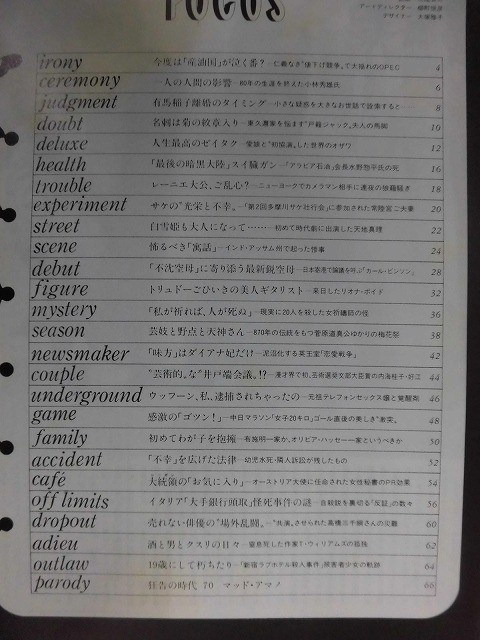 FOCUS
アートディレクター
デザイナー
irony 今度は「産油国」が泣く番?―仁義なき"値下げ競争"で大揺れのOPEC 4
ceremony 一人の人間の影響―80年の生涯を終えた小林秀雄氏 6
judgment 有馬稲子離婚のタイミング―小さな疑惑を大きなお世話で詮索すると 8
doubt 名刺は菊の紋章入り―東久邇家を悩ます"戸籍ジャック"夫人の馬脚 10
deluxe 人生最高のゼイタク―愛娘と"初協演"した世界のオザワ 12
health 「最後の暗黒大陸」スイ臓ガン―「アラビア石油」会長水野惣平氏の死 16
trouble レーニエ大公、ご乱心?―ニューヨークでカメラマン相手に連夜の狼藉騒ぎ 18
experiment サケの"光栄と不幸"―「第2回多摩川サケ壮行会」に参加された常陸宮ご夫妻 20
street 白雪姫も大人になって………初めて時代劇に出演した天地真理 22
scene 怖るべき「寓話」―インド・アッサム州で起った惨事 24
debut 「不沈空母」に寄り添う最新鋭空母―日本寄港で論議を呼ぶ「カール・ビンソン」 28
figure トリュドーごひいきの美人ギタリスト―来日したリオナ・ボイド 32
mystery 「私が祈れば、人が死ぬ」―現実に20人を殺した女祈禱師の怪 36
season 芸妓と野点と天神さん―870年の伝統をもつ菅原道真公ゆかりの梅花祭 38
newsmaker 「味方」はダイアナ妃だけ―泥沼化する英王室「恋愛戦争」 42
couple "芸術的"な"井戸端会議"!?―漫才界で初、芸術選奨文部大臣賞の内海桂子・好江 44
underground ウッフーン、私、逮捕されちゃったの―元祖テレフォンセックス嬢と覚醒剤 46
game 感激の「ゴツン!」―中日マラソン「女子20キロ」ゴール直後の美しき"激突" 48
family 初めてわが子を抱擁―布施明一家か、オリビア・ハッセー一家というべきか 50
accident 「不幸」を広げた法律―幼児水死・隣人訴訟が残したもの 52
café 大統領の「お気に入り」―オーストリア大使に任命された女性秘書のPR効果 54
off limits イタリア「大手銀行頭取」怪死事件の謎―自殺説を裏切る"反証"の数々 56
dropout 売れない俳優の"場外乱闘"―"共演"させられた高橋三千綱さんの災難 60
adieu 酒と男とクスリの日々―窒息死した作家T・ウィリアムズの孤独 62
outlaw 19歳にして朽ちたり―「新宿ラブホテル殺人事件」被害者少女の軌跡 64
parody 狂告の時代 70 マッド・アマノ 66